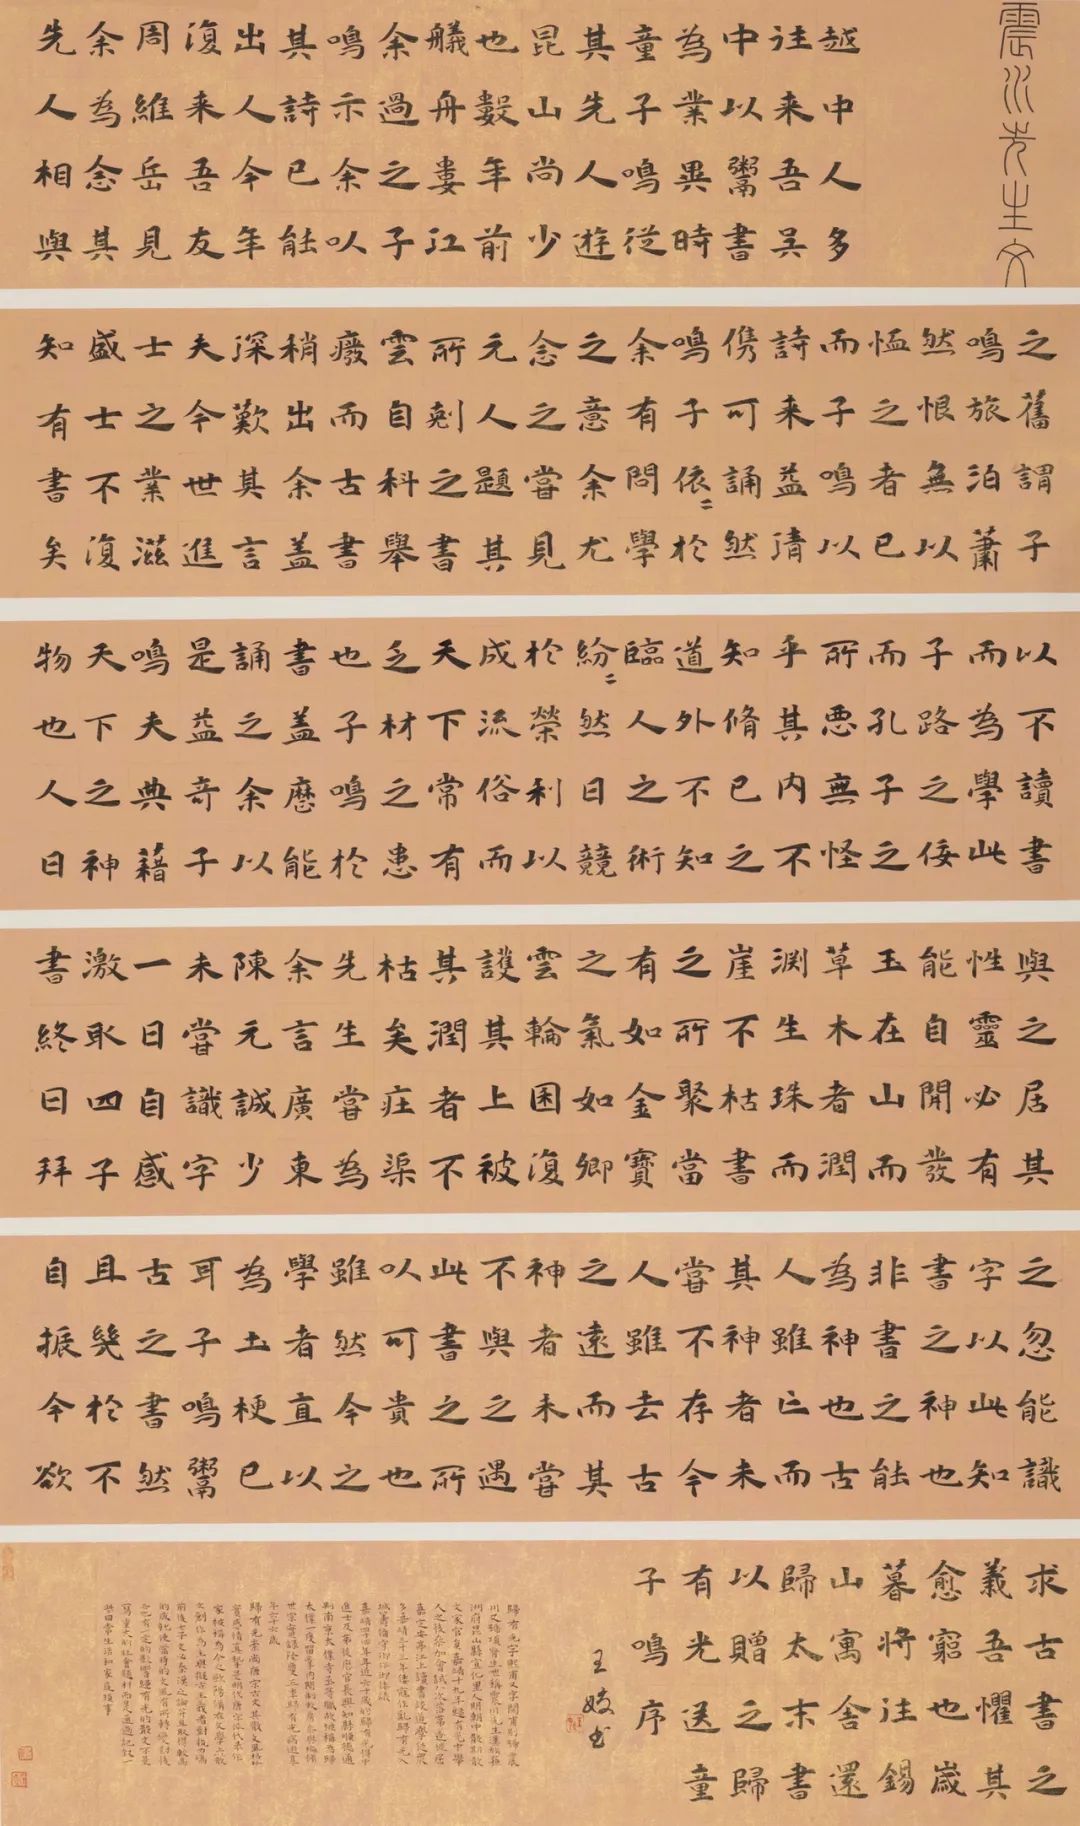 震川先生文
越中人多
往来吾吴
中以鬻書
為業異時
童子鳴從
其先人遊
昆山尚少
也數年前
艤舟婁江
余過之子
鳴示余以
其詩已能
出人今年
復来吾友
周維岳見
余為念其
先人相與
之舊謂子
鳴旅泊蕭
然恨無以
恤之者已
而子鳴以
詩来益清
儁可誦然
鳴子依二於
余有問學
之意余尤
念之嘗見
元人題其
所刻之書
雲自科舉
廢而古書
稍出余盖
深歎其言
夫今世進
士之業滋
盛士不復
知有書矣
以不讀書
而為學此
子路之佞
而孔子之
所惡無怪
乎其内不
知脩已之
道外不知
臨人之術
紛二然日競
於榮利以
成流俗而
天下常有
乏材之患
也子鳴於
書盖歷能
誦之余以
是益奇子
鳴夫典藉
天下之神
物也人日
與之居其
性靈必有
能自開發
玉在山而
草木者潤
渊生珠而
崖不枯書
之所聚當
有如金寶
之氣如卿
雲輪囷復
護其上被
其潤者不
枯矣莊渠
先生嘗為
余言廣東
陳元誠少
未嘗識字
一日自感
激取四子
書終日拜
之忽能識
字以此知
書之神也
非書之能
為神也古
人雖亡而
其神者未
嘗不存今
人雖去古
之遠而其
神者未嘗
不與之遇
此書之所
以可貴也
雖然今之
學者直以
為土梗已
耳子鳴鬻
古之書然
且幾於不
自振今欲
求古書之
義吾懼其
愈窮也歲
暮將往錫
山寓舍還
歸太末書
以贈之歸
有光送童
子鳴序
歸有光字熙甫又字開甫别號震
川又號項脊生世稱震川先生漢族蘇
州府昆山縣宣化里人明朝中期散
文家官員嘉靖十九年